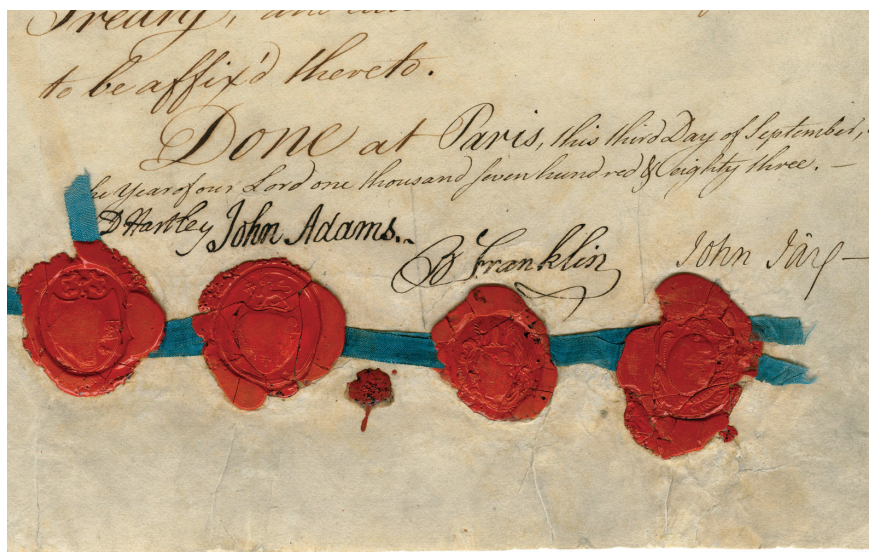 Treaty, and
to be affix'd thereto.
Done at Paris, this third Day of September,
he Year of our Lord one thousand seven hundred & eighty three. —
D Hartley John Adams. B Franklin John Jay —